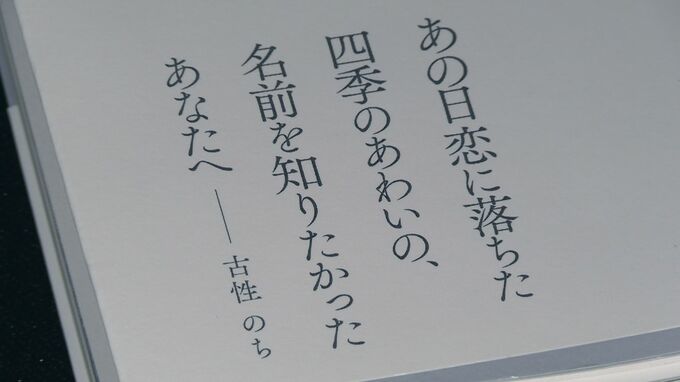 あの日恋に落ちた
四季のあわいの、
名前を知りたかった
あなたへ ── 古性 のち